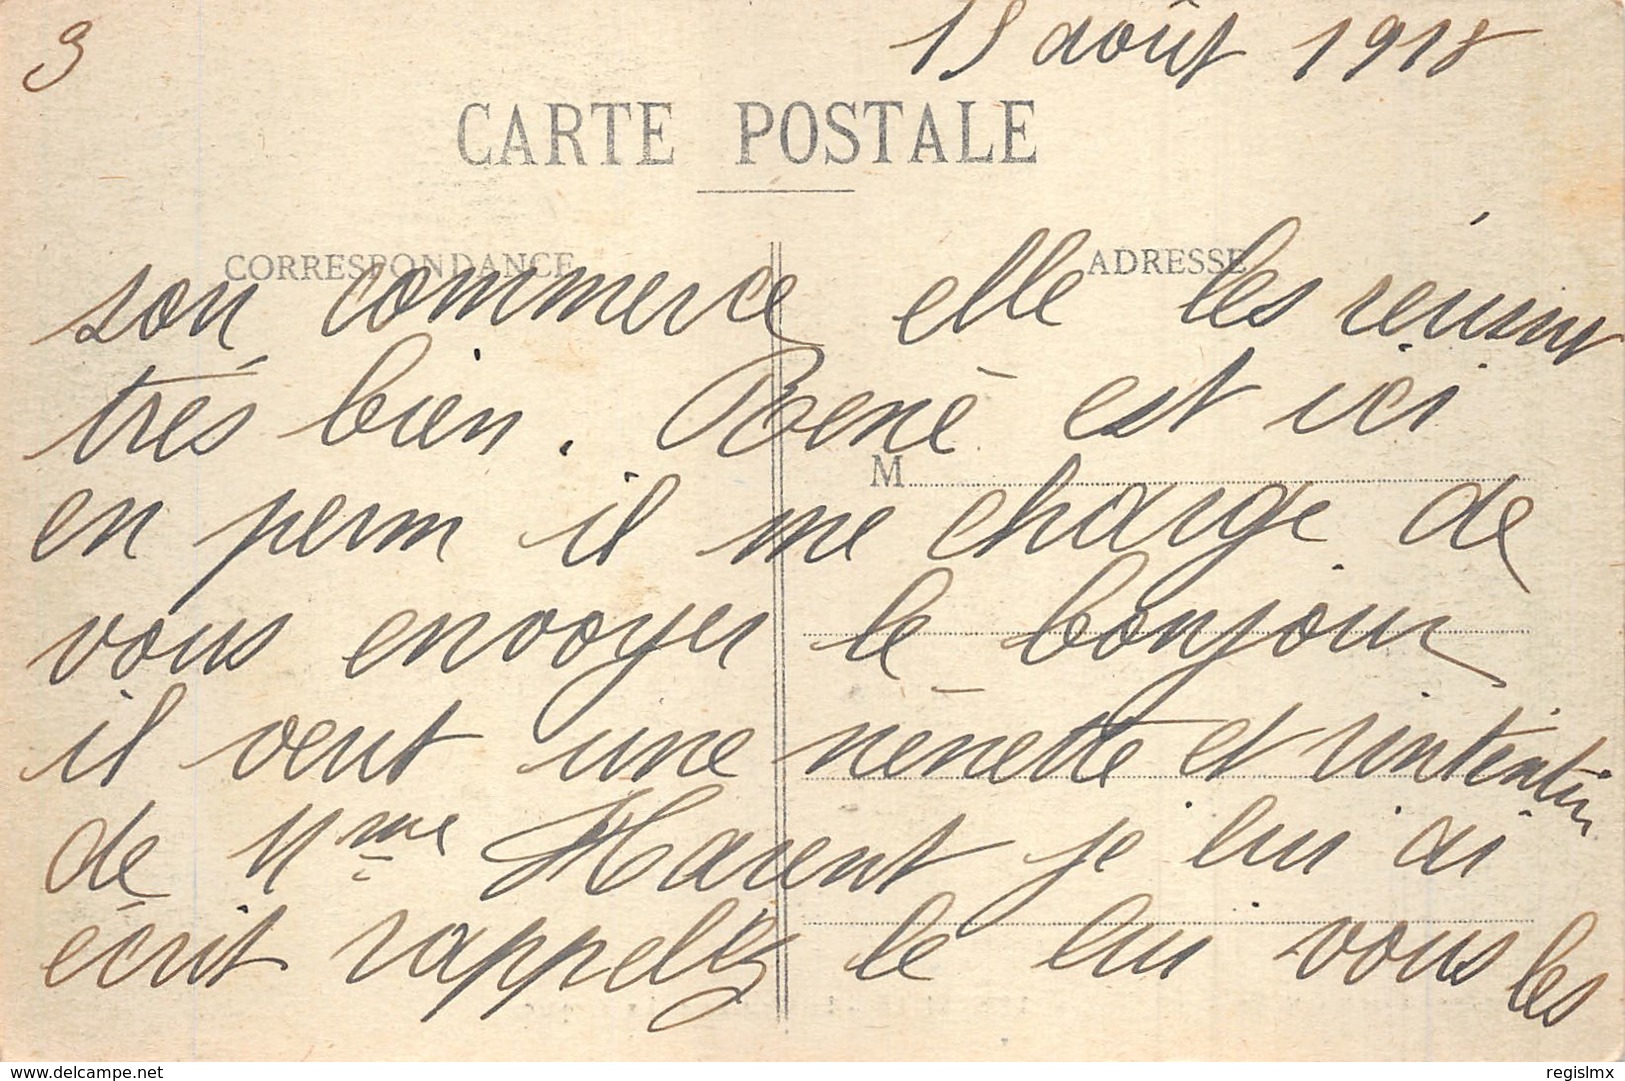 3
15 août 1918
CARTE POSTALE
CORRESPONDANCE
ADRESSE
son commerce elle les réussir
très bien. René est ici
M
en perm il me charge de
vous envoyer le bonjour
il veut une nénette et rintintin
de Mme Harent je lui ai
écrit rappelez le lui vous les
delcampe.net
regislmx